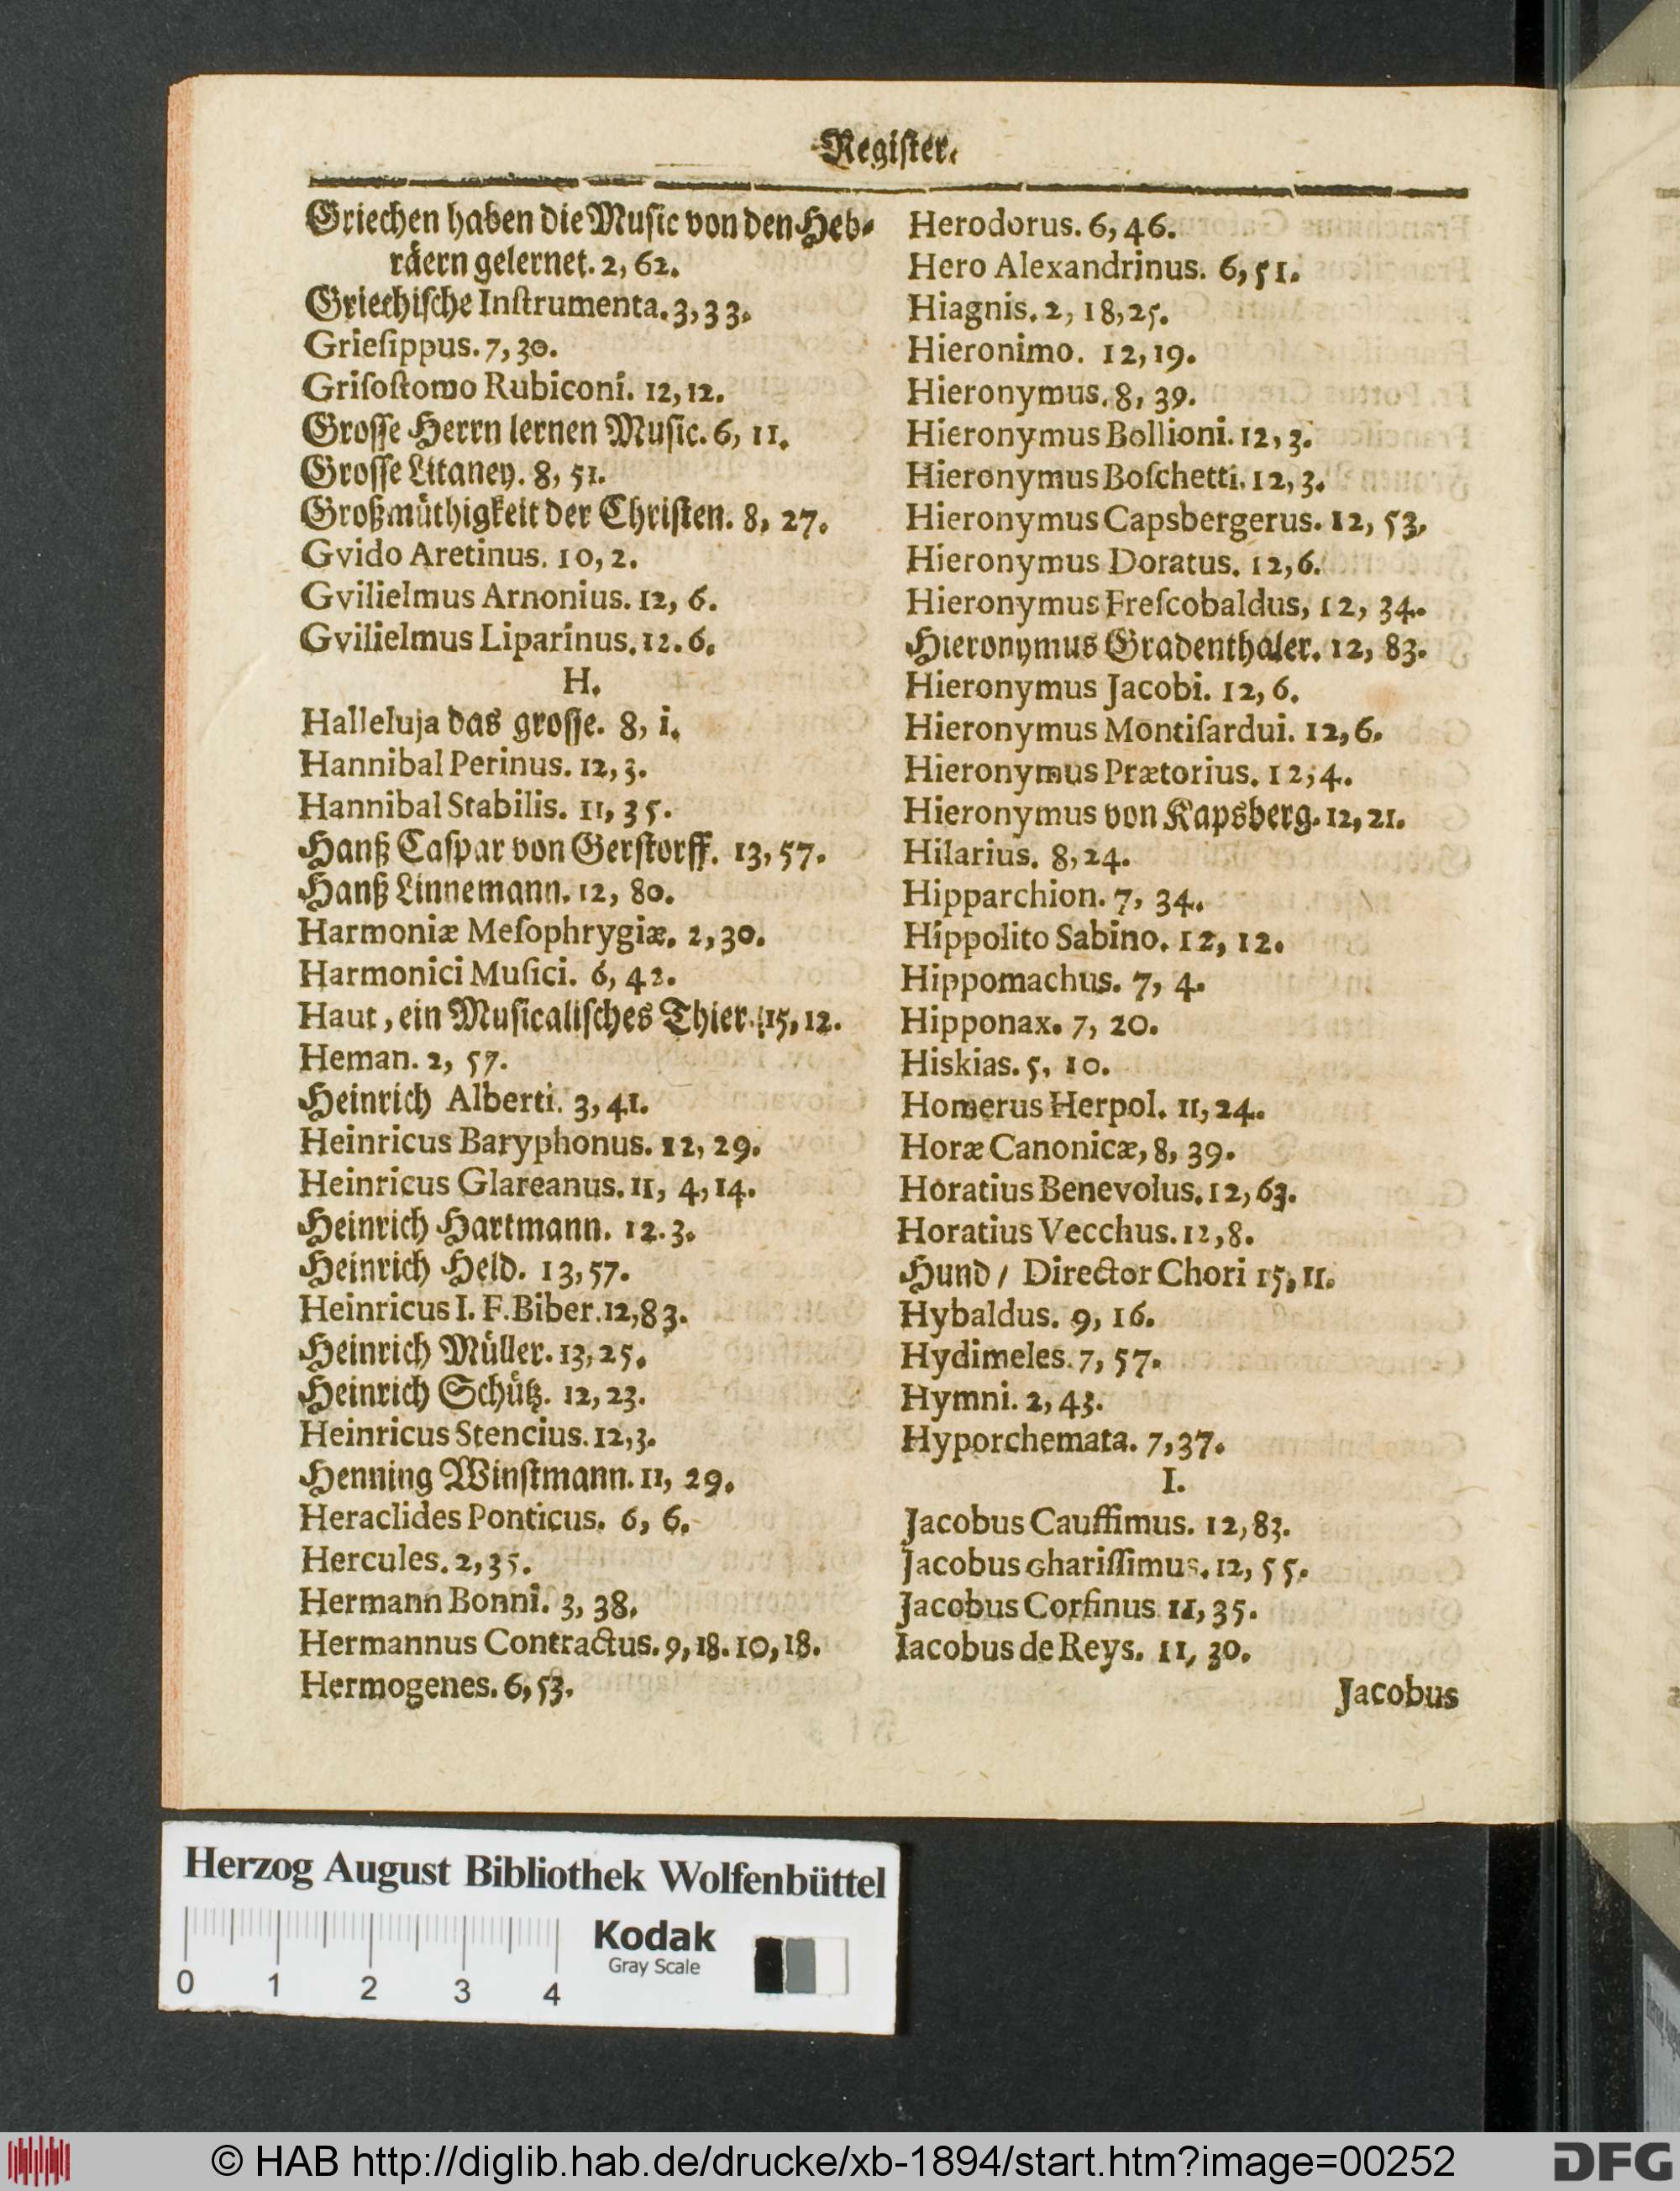 Register.
Griechen haben die Music von den Heb-
räern gelernet. 2, 62.
Griechische Inſtrumenta. 3, 33.
Grieſippus. 7, 30.
Griſoſtomo Rubiconi. 12, 12.
Groſſe Herrn lernen Muſic. 6, 11.
Groſſe Litaney. 8, 51.
Großmüthigkeit der Chriſten. 8, 27.
Gvido Aretinus. 10, 2.
Gvilielmus Arnonius. 12, 6.
Gvilielmus Liparinus. 12. 6.
H.
Halleluja das groſſe. 8, i.
Hannibal Perinus. 12, 3.
Hannibal Stabilis. 11, 35.
Hanß Caſpar von Gerſtorff. 13, 57.
Hanß Linnemann. 12, 80.
Harmoniæ Meſophrygiæ. 2, 30.
Harmonici Muſici. 6, 42.
Haut, ein Muſicaliſches Thier. 15, 12.
Heman. 2, 57.
Heinrich Alberti. 3, 41.
Heinricus Baryphonus. 12, 29.
Heinricus Glareanus. 11, 4, 14.
Heinrich Hartmann. 12. 3.
Heinrich Held. 13, 57.
Heinricus I. F. Biber. 12, 83.
Heinrich Müller. 13, 25.
Heinrich Schütz. 12, 23.
Heinricus Stencius. 12, 3.
Henning Winſtmann. 11, 29.
Heraclides Ponticus. 6, 6.
Hercules. 2, 35.
Hermann Bonni. 3, 38.
Hermannus Contractus. 9, 18. 10, 18.
Hermogenes. 6, 53.
Herodorus. 6, 46.
Hero Alexandrinus. 6, 51.
Hiagnis. 2, 18, 25.
Hieronimo. 12, 19.
Hieronymus. 8, 39.
Hieronymus Bollioni. 12, 3.
Hieronymus Boſchetti. 12, 3.
Hieronymus Capsbergerus. 12, 53.
Hieronymus Doratus. 12, 6.
Hieronymus Freſcobaldus, 12, 34.
Hieronymus Gradenthaler. 12, 83.
Hieronymus Jacobi. 12, 6.
Hieronymus Montiſardui. 12, 6.
Hieronymus Prætorius. 12, 4.
Hieronymus von Kapsberg. 12, 21.
Hilarius. 8, 24.
Hipparchion. 7, 34.
Hippolito Sabino. 12, 12.
Hippomachus. 7, 4.
Hipponax. 7, 20.
Hiskias. 5, 10.
Homerus Herpol. 11, 24.
Horæ Canonicæ, 8, 39.
Horatius Benevolus. 12, 63.
Horatius Vecchus. 12, 8.
Hund / Director Chori 15, 11.
Hybaldus. 9, 16.
Hydimeles. 7, 57.
Hymni. 2, 43.
Hyporchemata. 7, 37.
I.
Jacobus Cauffimus. 12, 83.
Jacobus Ghariſſimus. 12, 55.
Jacobus Corfinus 11, 35.
Iacobus de Reys. 11, 30.
Jacobus
Herzog August Bibliothek Wolfenbüttel
Kodak
Gray Scale
0 1 2 3 4
© HAB http://diglib.hab.de/drucke/xb-1894/start.htm?image=00252
DFG